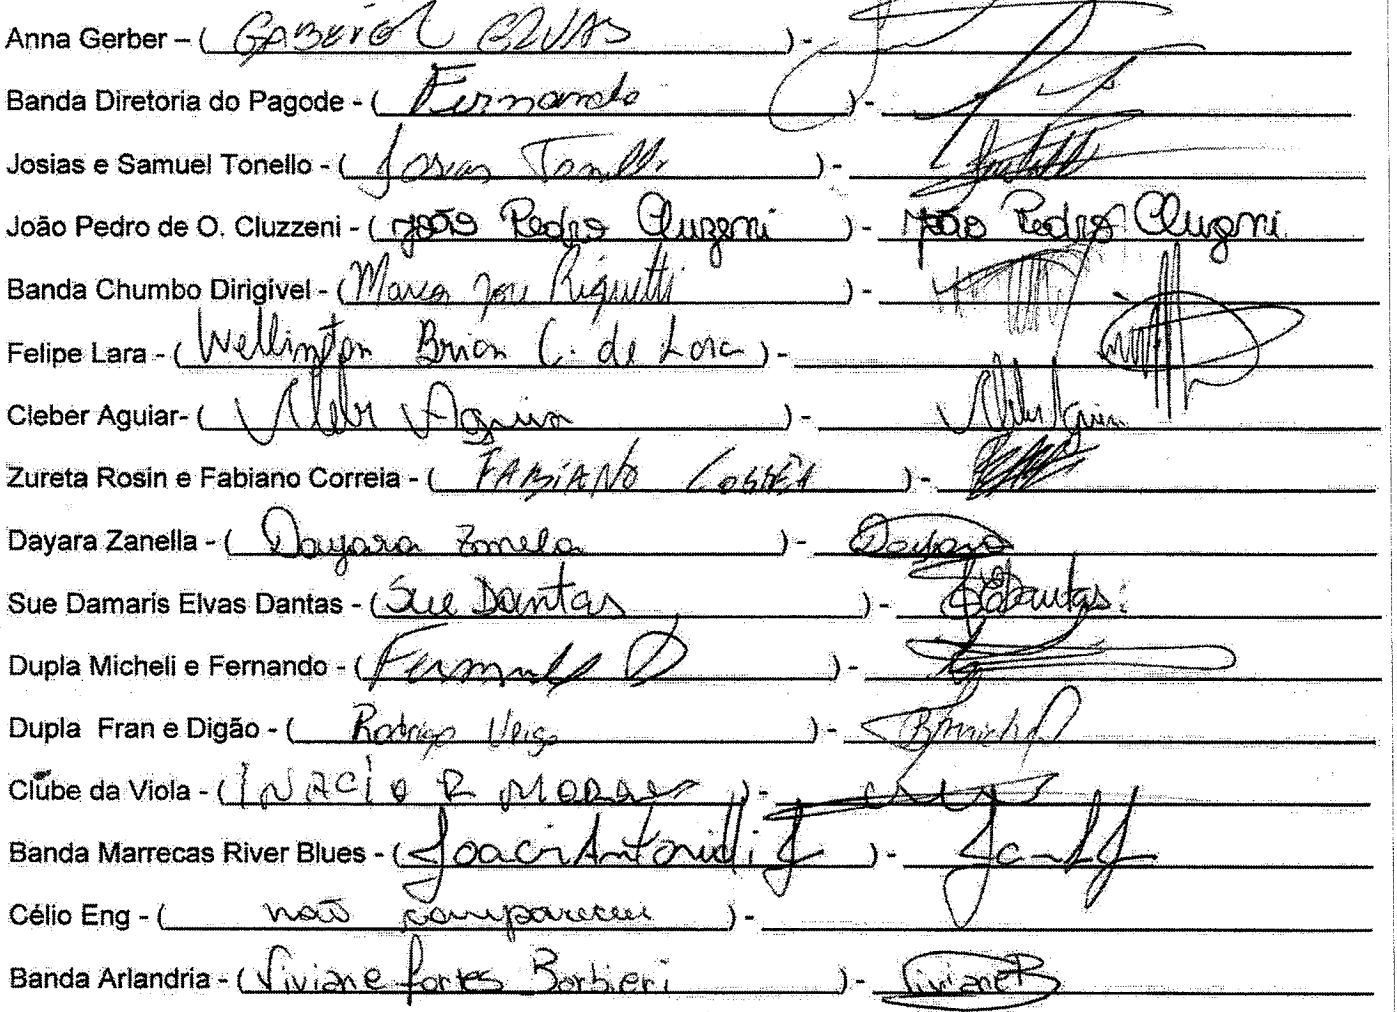 Anna Gerber – ( GABRIEL ELVAS ) -
Banda Diretoria do Pagode - ( Fernando ) -
Josias e Samuel Tonello - ( Josias Tonello ) -
João Pedro de O. Cluzzeni - ( João Pedro Cluzeni ) - João Pedro Cluzeni
Banda Chumbo Dirigível - ( Marco José Riguetti ) -
Felipe Lara - ( Wellington Brion C. de Lara ) -
Cleber Aguiar- ( Cleber Aguiar ) - Cleber Aguiar
Zureta Rosin e Fabiano Correia - ( FABIANO CORRÊA ) -
Dayara Zanella - ( Dayara Zanela ) - Dayara
Sue Damaris Elvas Dantas - ( Sue Dantas ) - SDantas
Dupla Micheli e Fernando - ( Fernando D ) -
Dupla Fran e Digão - ( Rodrigo Veiga ) -
Clube da Viola - ( INACIO R MORAES ) -
Banda Marrecas River Blues - ( Joacir Antonelli J ) -
Célio Eng - ( não compareceu ) -
Banda Arlandria - ( Viviane Fortes Barbieri ) - Viviane B